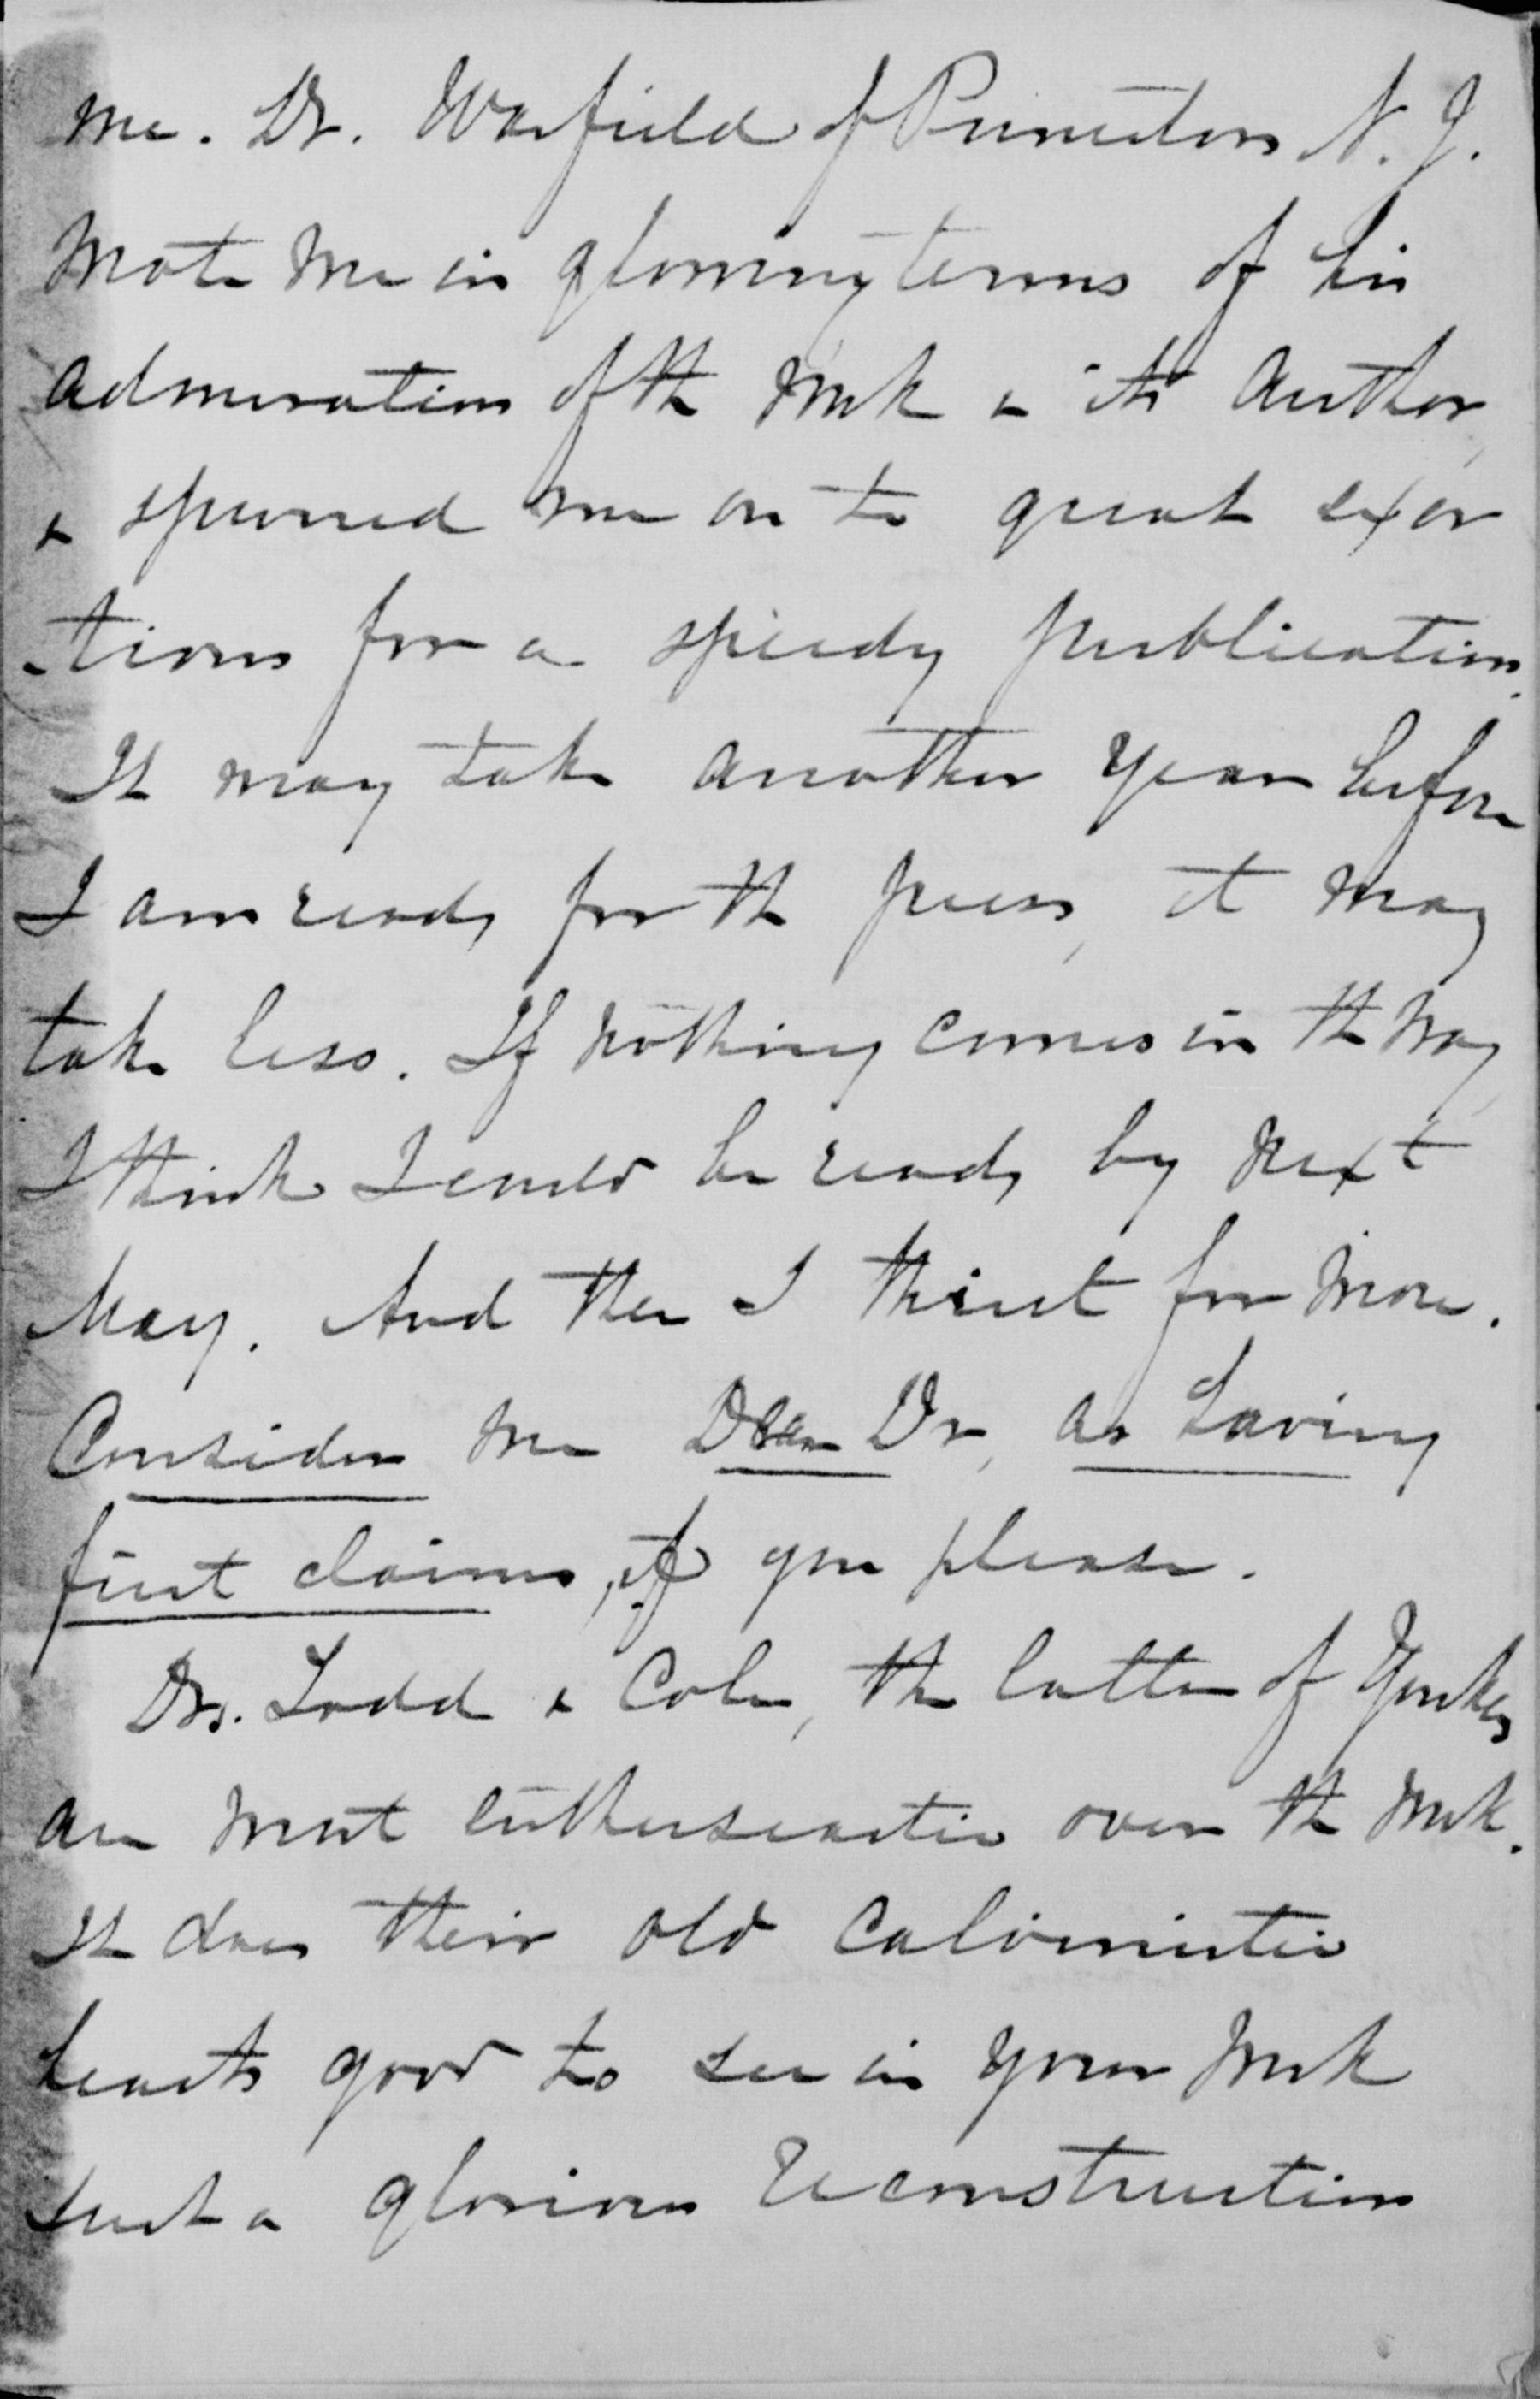 me. Dr. Warfield of Princeton N. J.
wrote me in glowing terms of his
admiration of the work & its author,
& spurred me on to great exer
-tions for a speedy publication.
It may take another year before
I am ready for the press, it may
take less. If nothing comes in the way,
I think I could be ready by next
May. And then I thirst for more.
Consider me Dear Dr, as having
first claims, if you please.
Drs. Todd & Cole, the latter of Yonkers
are most enthusiastic over the work.
It does their old Calvinistic
hearts good to see in your work
such a glorious reconstruction